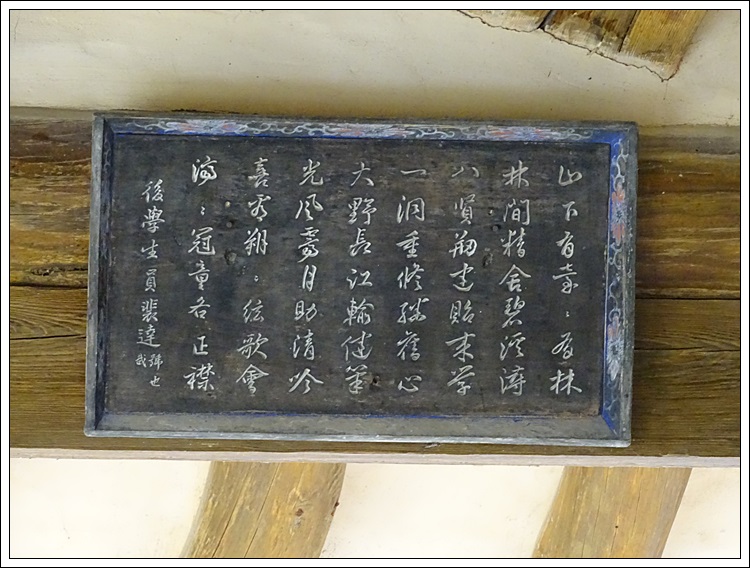 山下有臺〻有林
林間精舍碧溪潯
八賢刱建貽來學
一洞重修繼舊心
大野長江輸健筆
光風霽月助清吟
喜看翔〻絃歌會
濟〻冠童各正襟
後學生員裴達